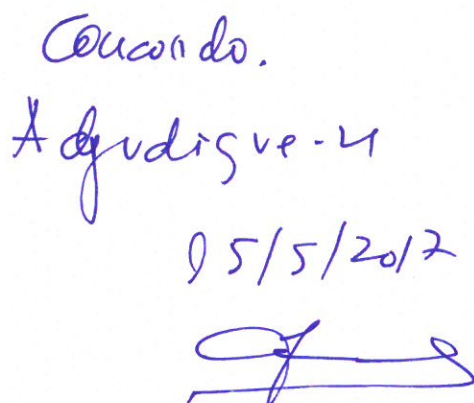 Concordo.
Adjudique-se
05/5/2017